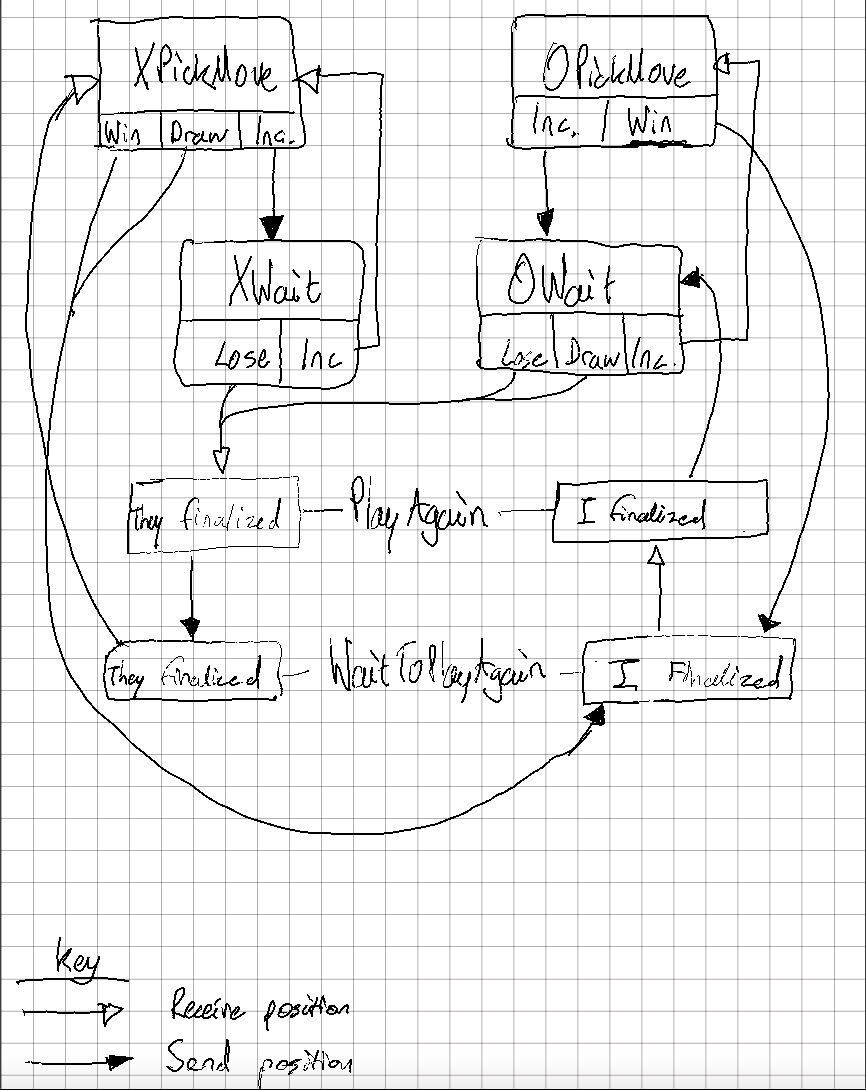 XPickMove
OPickMove
Win Draw Inc.
Inc. Win
XWait
OWait
Lose Inc
Lose Draw Inc.
They finalized
PlayAgain
I finalized
They finalized
WaitToPlayAgain
I Finalized
Key
Receive position
Send position